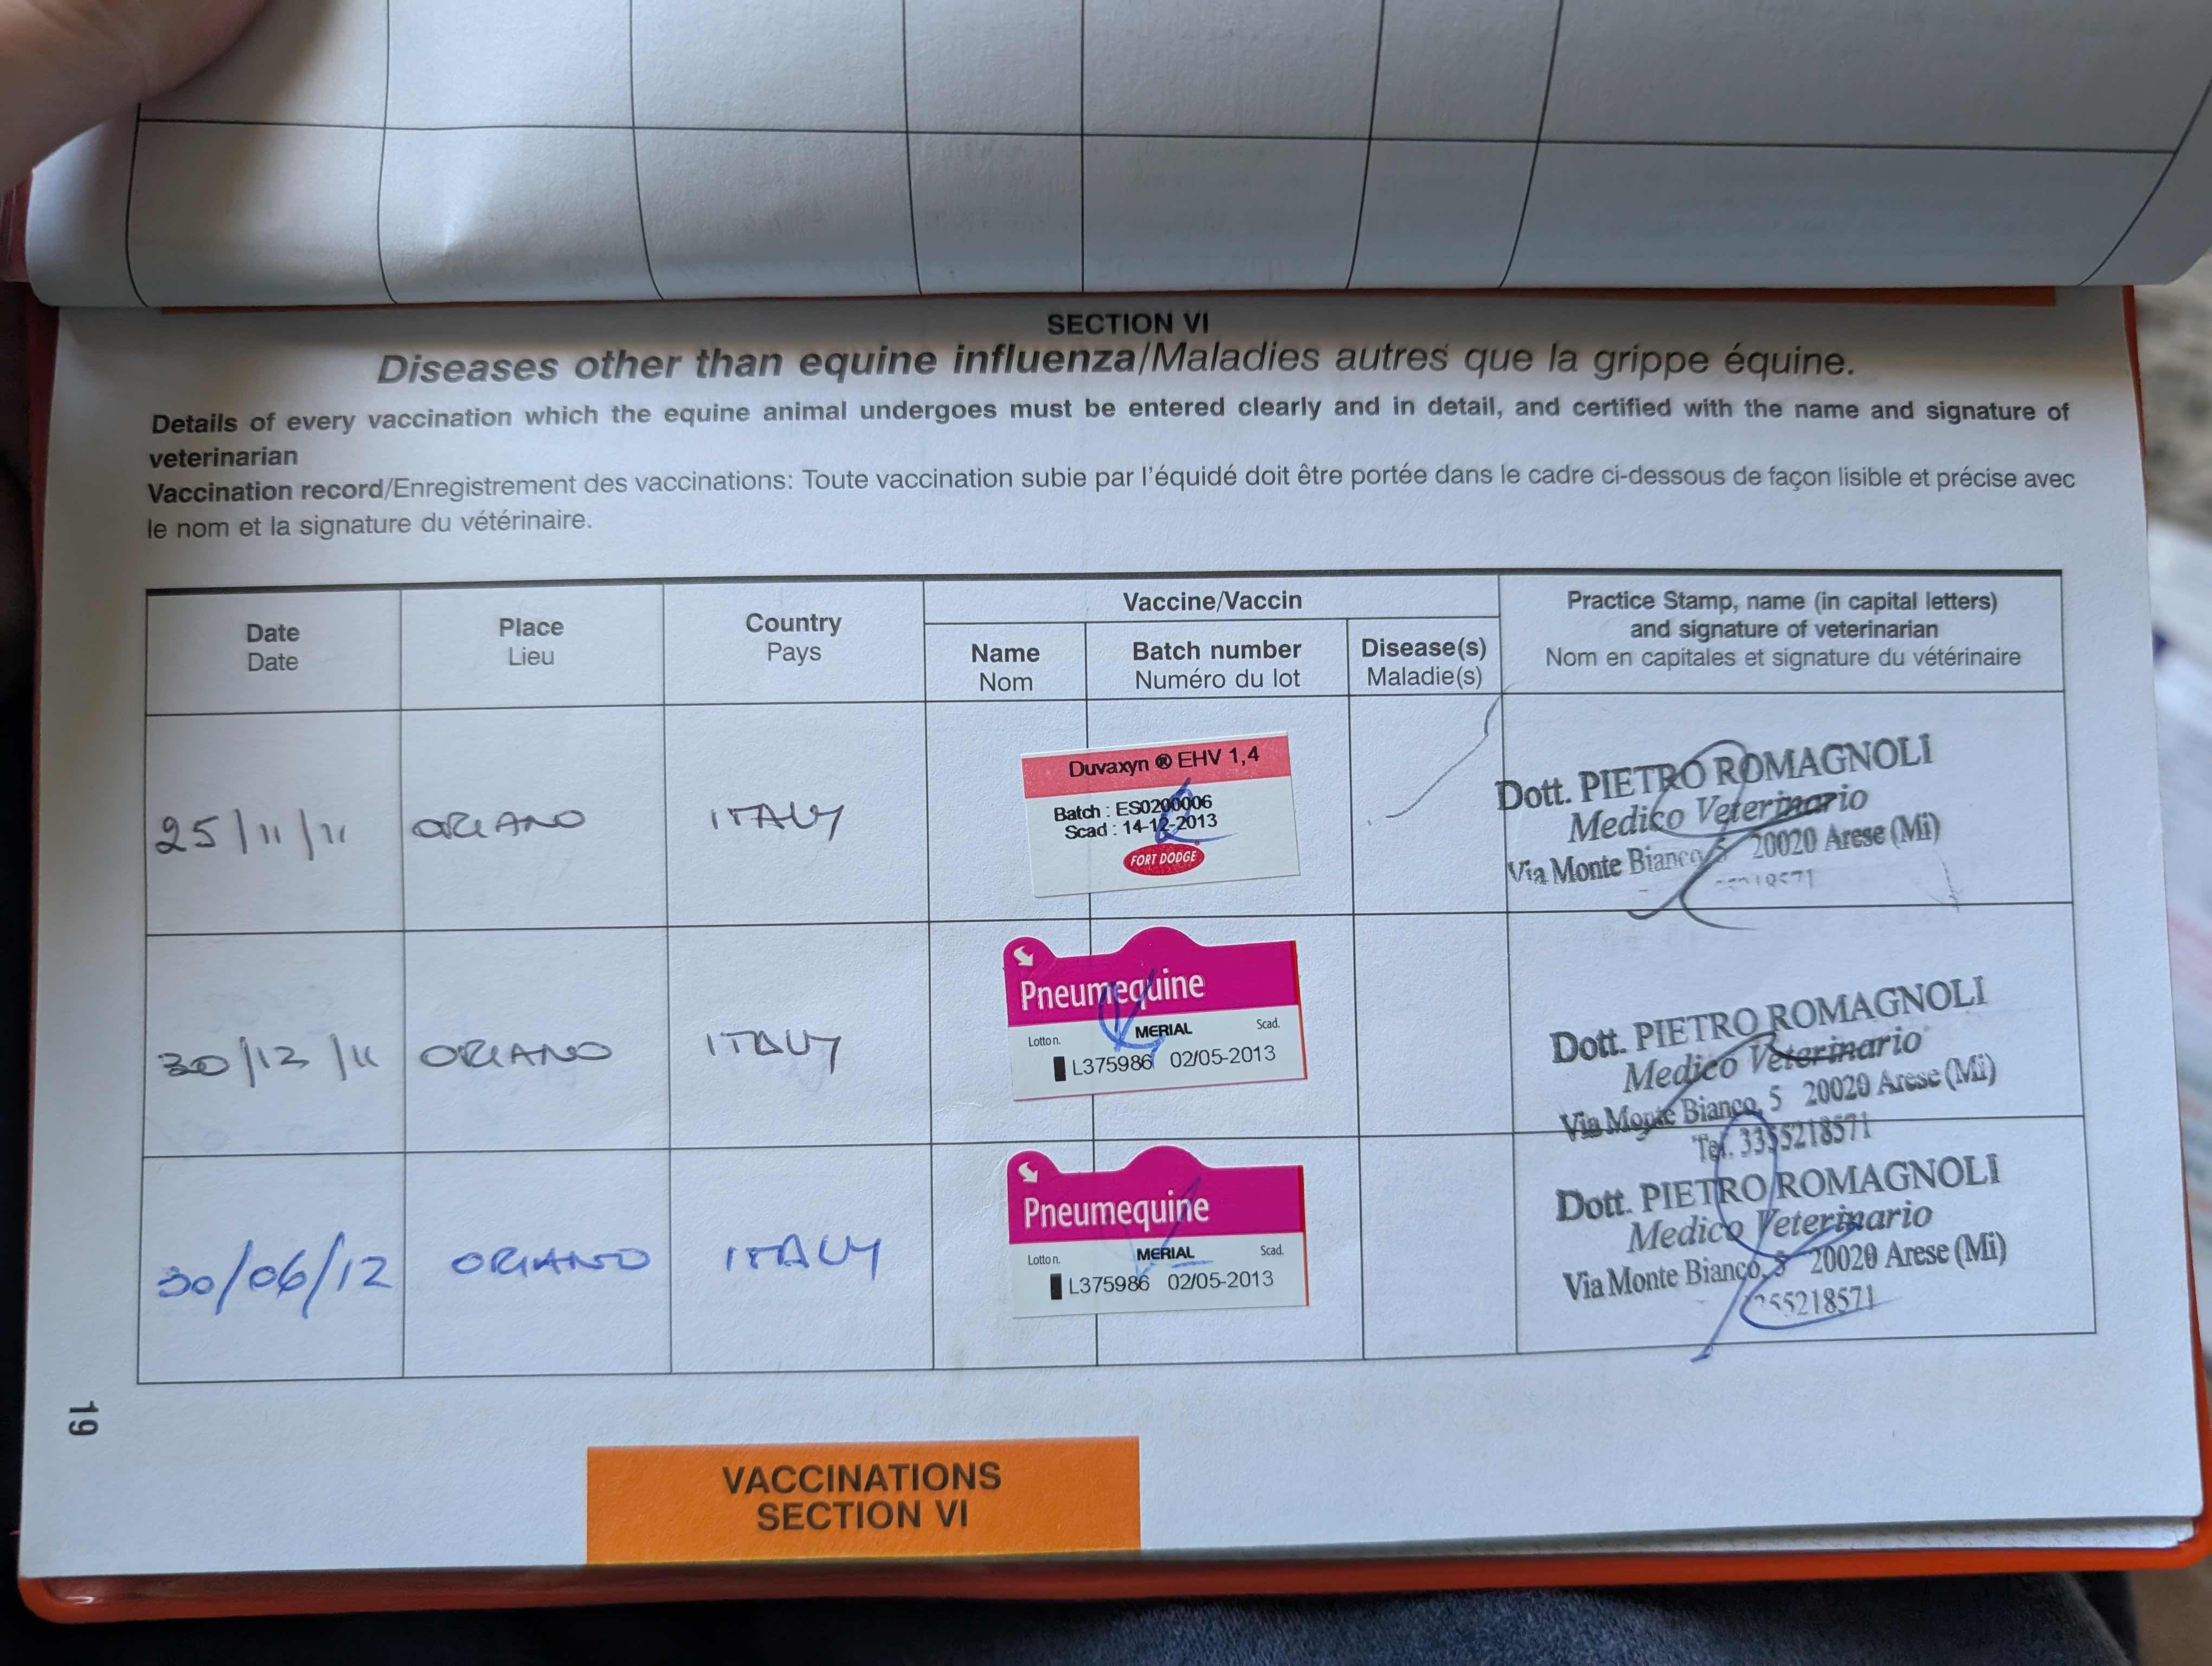 SECTION VI
Diseases other than equine influenza/Maladies autres que la grippe équine.
Details of every vaccination which the equine animal undergoes must be entered clearly and in detail, and certified with the name and signature of
veterinarian
Vaccination record/Enregistrement des vaccinations: Toute vaccination subie par l'équidé doit être portée dans le cadre ci-dessous de façon lisible et précise avec
le nom et la signature du vétérinaire.
Date
Date
Place
Lieu
Country
Pays
Vaccine/Vaccin
Name
Nom
Batch number
Numéro du lot
Disease(s)
Maladie(s)
Practice Stamp, name (in capital letters)
and signature of veterinarian
Nom en capitales et signature du vétérinaire
25/11/11
ORIANO
ITALY
Duvaxyn ® EHV 1,4
Batch : ES0200006
Scad : 14-12-2013
FORT DODGE
Dott. PIETRO ROMAGNOLI
Medico Veterinario
Via Monte Bianco, 5 20020 Arese (Mi)
30/12/11
ORIANO
ITALY
Pneumequine
MERIAL
Lotto n. Scad.
L375986 02/05-2013
Dott. PIETRO ROMAGNOLI
Medico Veterinario
Via Monte Bianco, 5 20020 Arese (Mi)
Tel. 3355218571
30/06/12
ORIANO
ITALY
Pneumequine
MERIAL
Lotto n. Scad.
L375986 02/05-2013
Dott. PIETRO ROMAGNOLI
Medico Veterinario
Via Monte Bianco, 5 20020 Arese (Mi)
355218571
19
VACCINATIONS
SECTION VI